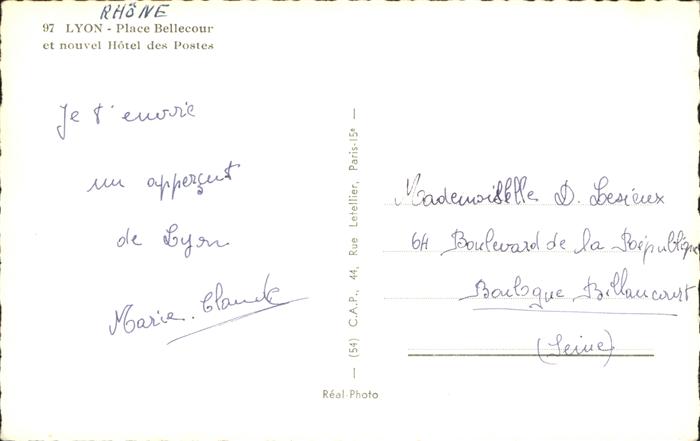 RHÔNE
97 LYON - Place Bellecour
et nouvel Hôtel des Postes
Je t'envoie
un apperçut
de Lyon
Marie-Claude
— (54) C.A.P., 44, Rue Letellier, Paris-15e —
Réal-Photo
Mademoiselle D. Lesieux
64 Boulevard de la République
Boulogne Billancourt
(Seine)